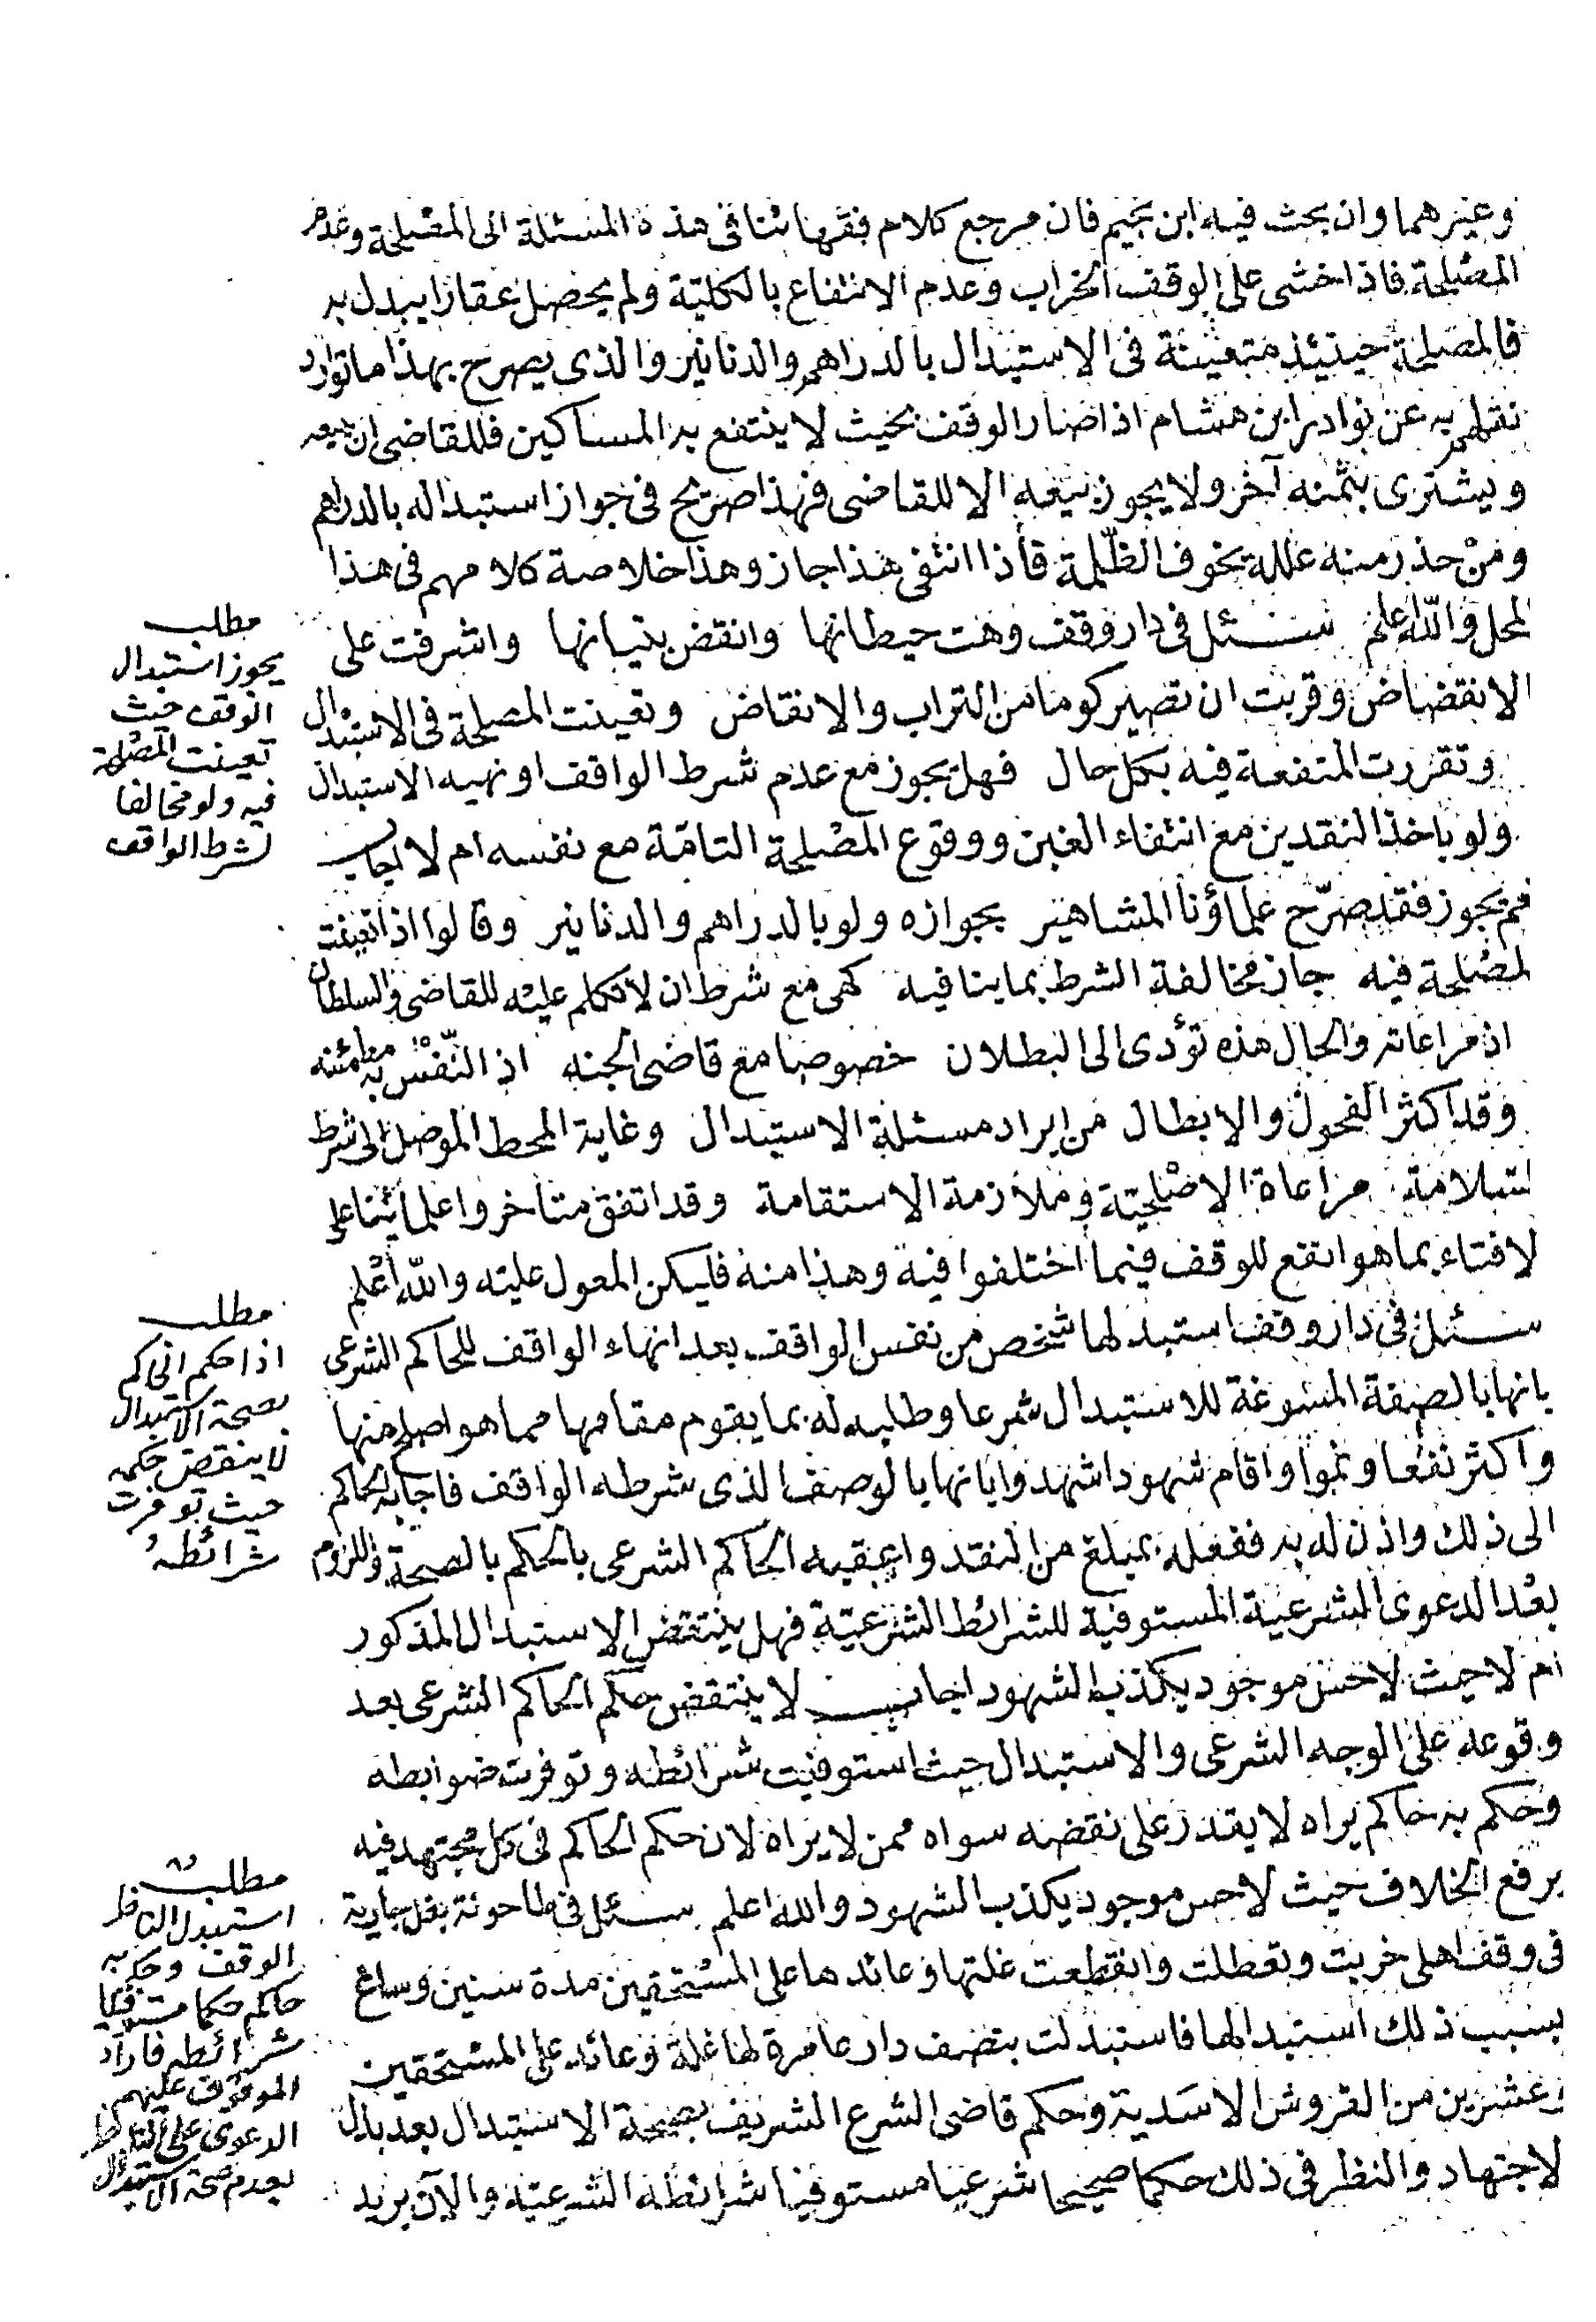 وغيرهما وان بحث فيه ابن نجيم فان مرجع كلام فقهائنا فى هذه المسئلة الى المصلحة وعدم
المصلحة فاذا خشى على الوقف الخراب وعدم الانتفاع بالكلية ولم يحصل عقارا يبدل به
فالمصلحة حينئذ متعينة فى الاستبدال بالدراهم والدنانير والذى يصرح بهذا ما توارد
نقلهم به عن نوادر ابن هشام اذا صار الوقف بحيث لا ينتفع به المساكين فللقاضى ان يبيعه
ويشترى بثمنه آخر ولا يجوز بيعه الا للقاضى فهذا صريح فى جواز استبداله بالدراهم
ومن حذر منه علله بخوف الظلمة فأذا انتفى هذا جاز وهذا خلاصة كلامهم فى هذا
لمحل والله اعلم سئل فى دار وقف وهت حيطانها وانقض بنيانها واشرفت على
الانقضاض وقربت ان تصير كوما من التراب والانقاض وتعينت المصلحة فى الاستبدال
وتقررت المنفعة فيه بكل حال فهل يجوز مع عدم شرط الواقف او نهيه الاستبدال
ولو باخذ النقدين مع انتفاء الغبن ووقوع المصلحة التامة مع نفسه ام لا اجاب
نعم يجوز فقد صرّح علماؤنا المشاهير بجوازه ولو بالدراهم والدنانير وقالوا اذا تعينت
لمصلحة فيه جاز مخالفة الشرط بما ينافيه كهى مع شرط ان لا تكلم عليه للقاضى والسلطان
اذ مراعاته والحال هذه تؤدى الى البطلان خصوصا مع قاضى الجنه اذ النّفْس به مطمئنه
وقد اكثر الفحول والابطال من ايراد مسئلة الاستبدال وغاية المحط الموصل الى شرط
لسلامة مراعاة الاصْلحيّة وملازمة الاستقامة وقد اتفق متاخروا علمائنا على
لافتاء بما هو انفع للوقف فيما اختلفوا فيه وهذا منه فليكن المعول عليه والله اعلم
سئل فى دار وقف استبدلها شخص من نفس الواقف بعد انهاء الواقف للحاكم الشرعى
بانها بالصفة المسوغة للاستبدال شرعا وطلبه له بما يقوم مقامها مما هو اصلح منها
واكثر نفعا ونموا واقام شهودا شهدوا بانها بالوصف الذى شرطه الواقف فاجابه الحاكم
الى ذلك واذن له به ففعله بمبلغ من النقد واعقبه الحاكم الشرعى بالحكم بالصحة واللزوم
بعد الدعوى الشرعية المستوفية للشرائط الشرعيّة فهل ينتقض الاستبدال المذكور
ام لا حيث لا حس موجود يكذب الشهود اجاب لا ينتقض حكم الحاكم الشرعى بعد
وقوعه على الوجه الشرعى والاستبدال حيث استوفيت شرائطه وتوفرت ضوابطه
وحكم به حاكم يراه لا يقدر على نقضه سواه ممن لا يراه لان حكم الحاكم فى كل مجتهد فيه
يرفع الخلاف حيث لا حس موجود يكذب الشهود والله اعلم سئل فى طاحونة بغل جارية
فى وقف اهلى خربت وتعطلت وانقطعت غلتها وعائدها على المستحقين مدة سنين وساغ
بسبب ذلك استبدالها فاستبدلت بنصف دار عامرة لها غلة وعائد على المستحقين
وعشرين من القروش الاسدية وحكم قاضى الشرع الشريف بصحة الاستبدال بعد بذل
لاجتهاد والنظر فى ذلك حكما صحيحا شرعيا مستوفيا شرائطه الشرعيّة والآن يريد
مطلب
يجوز استبدال
الوقف حيث
تعينت المصلحة
فيه ولو مخالفا
لشرط الواقف
مطلب
اذا حكم الحاكم
بصحة الاستبدال
لا ينقض حكمه
حيث توفرت
شرائطه
مطلب
استبدل الناظر
الوقف وحكم به
حاكم حكما مستوفيا
شرائطه فاراد
الموقوف عليهم
الدعوى على الناظر
بعدم صحة الاستبدال